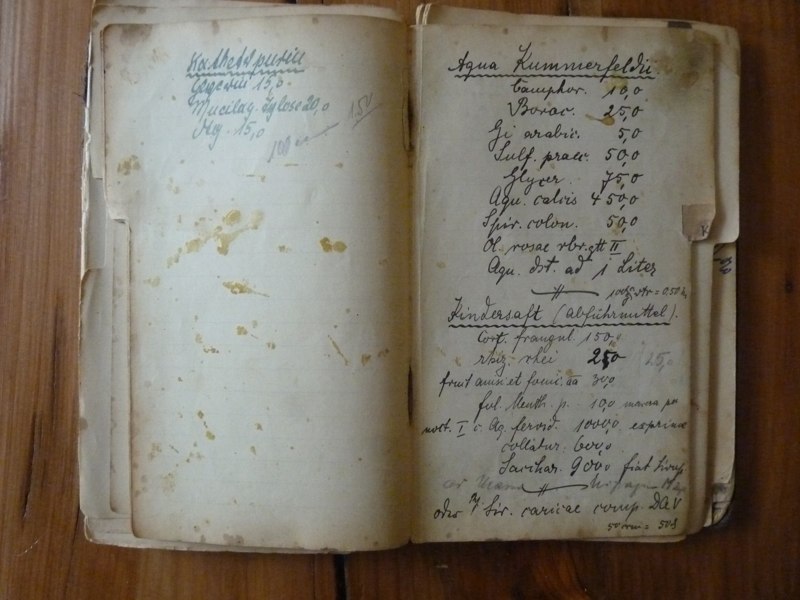 Kathetpurin
Glycerin 15,0
Mucilag. 20,0
Aq. 15,0
100 1.50
Aqua Kummerfeldii
Camphor. 10,0
Borac. 25,0
Gi arabic. 5,0
Sulf. praec. 50,0
Glycer. 75,0
Aqu. calcis 450,0
Spir. colon. 50,0
Ol. rosae gtt II
Aqu. dst. ad 1 Liter
Kindersaft (Abführmittel).
Cort. frangul. 150,0
rhiz. rhei 25,0 25,0
fruct anis. et foenic. aa 30,0
fol. Menth. p. 10,0
noct. I c. Aq. fervid. 1000,0 exprime
collatur 600,0
Sacchar. 900,0 fiat Sirup
oder Sir. caricae comp. DAV
50 ccm =